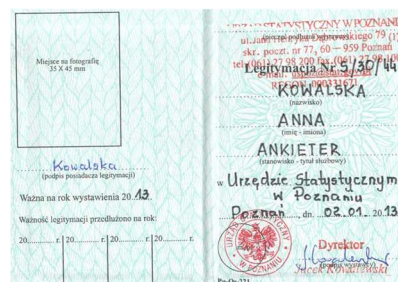 Miejsce na fotografię
35 X 45 mm
Kowalska
(podpis posiadacza legitymacji)
Ważna na rok wystawienia 2013.
Ważność legitymacji przedłużono na rok:
20........... r. 20........... r. 20........... r. 20........... r.
STATYSTYCZNY W POZNANIU
ul. Jana Henryka Dąbrowskiego 79
skr. poczt. nr 77, 60 – 959 Poznań
tel. (061) 27 98 200 fax (061) 27 98 100
Legitymacja Nr S/30/44
REGON 000331671
KOWALSKA
(nazwisko)
ANNA
(imię - imiona)
ANKIETER
(stanowisko - tytuł służbowy)
w Urzędzie Statystycznym
w Poznaniu
Poznań, dn. 02.01. 2013
URZĄD STATYSTYCZNY
W POZNANIU
Dyrektor
(podpis wystawcy)
Jacek Kowalewski